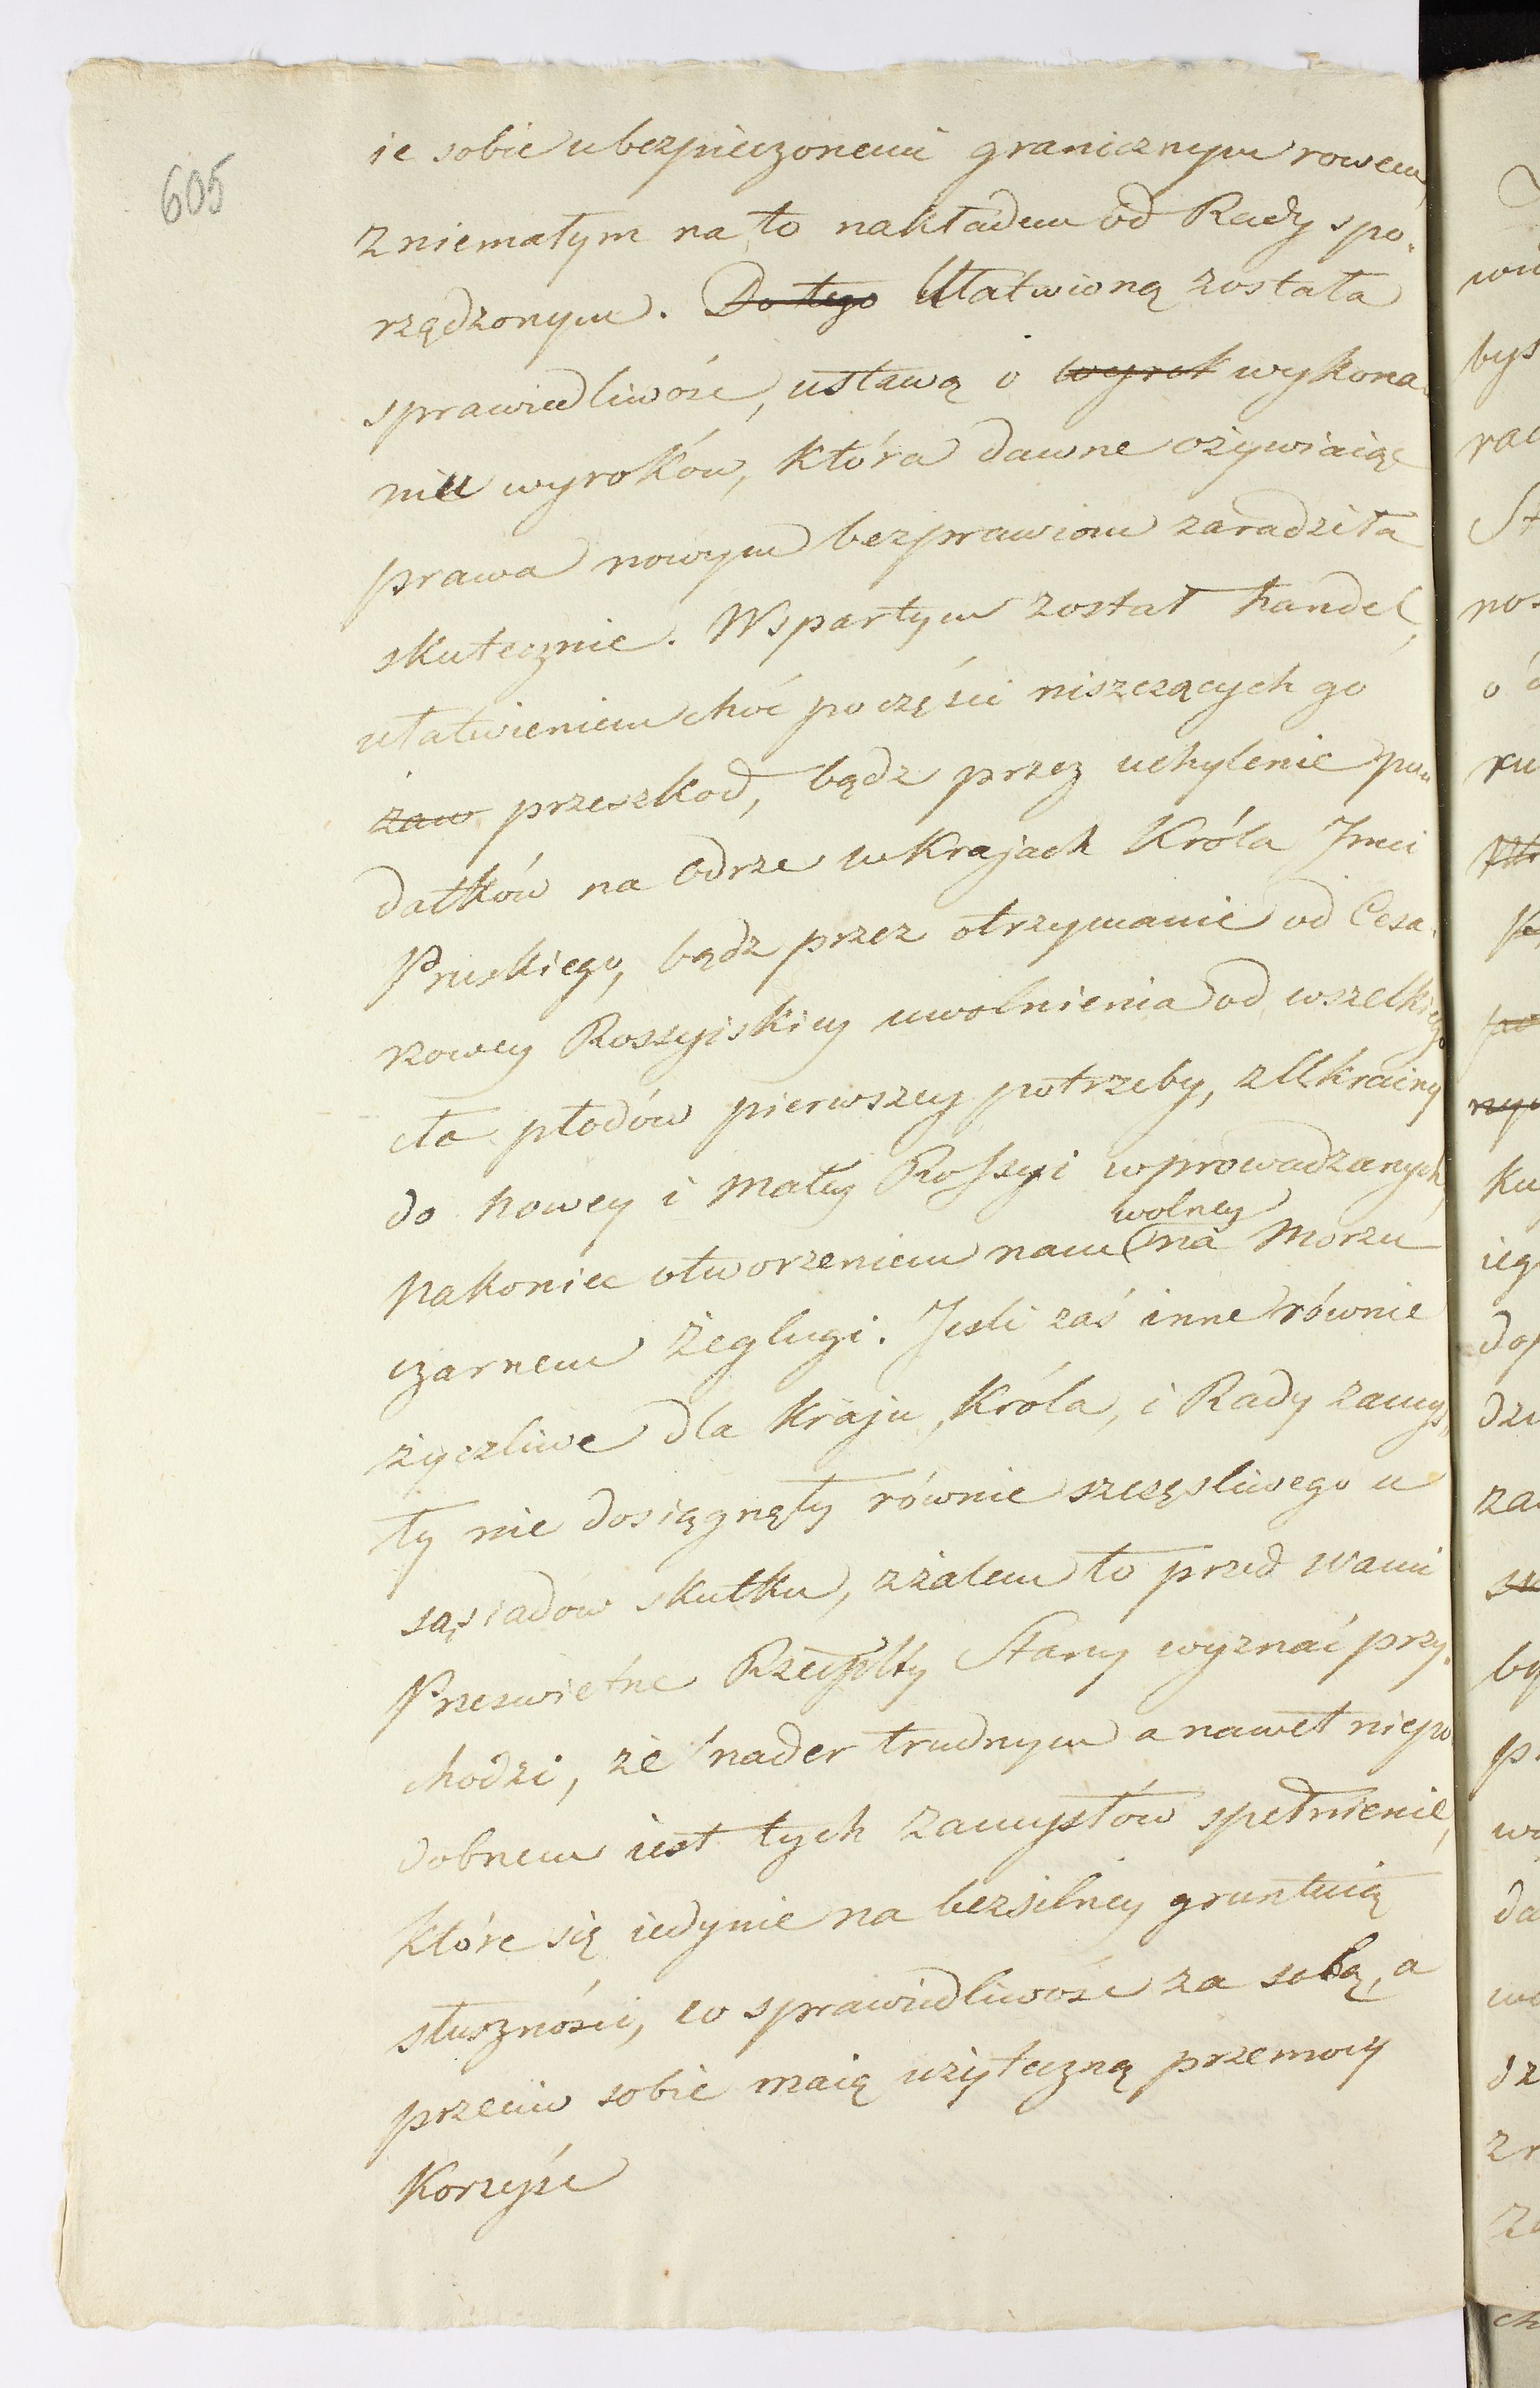 605
ie sobie ubezpieczonemi granicznym rowem,
z niemałym na to nakładem od Rady spo-
rządzonym. Do tego Ułatwioną została
sprawiedliwość, ustawą o wyrok wykona-
niu wyroków, która dawne ożywiaiąc
prawa nowym bezprawiom zaradziła
skutecznie. Wspartym został handel,
ułatwieniem choć po części niszczących go
zaw przeszkod, bądz przez uchylenie po-
datków na Odrze w Krajach Króla Jmci
Pruskiego, bądz przez otrzymanie od Cesa-
rzowey Rossyiskiey uwolnienia od wszelkiego
cła płodów pierwszey potrzeby, z Ukrainy
do nowey i małey Rossyi wprowadzanych,
wolney
nakoniec otworzeniem nam na Morzu
czarnem żeglugi. Jeśli zaś inne równie
życzliwe dla Kraju, Króla, i Rady zamys„
ły nie dosiągnęły równie szczęsliwego u
sąsiadow skutku, z żalem to przed Wami
Przeswietne Rzeczyplty Stany wyznać przy-
chodzi, że nader trudnym a nawet niepo
dobnem iest tych zamysłów spełnienie,
które się iedynie na bezsilney gruntuią
słuszności, co sprawiedliwość za sobą, a
przeciw sobie maią użyteczną przemocy
Korzyść